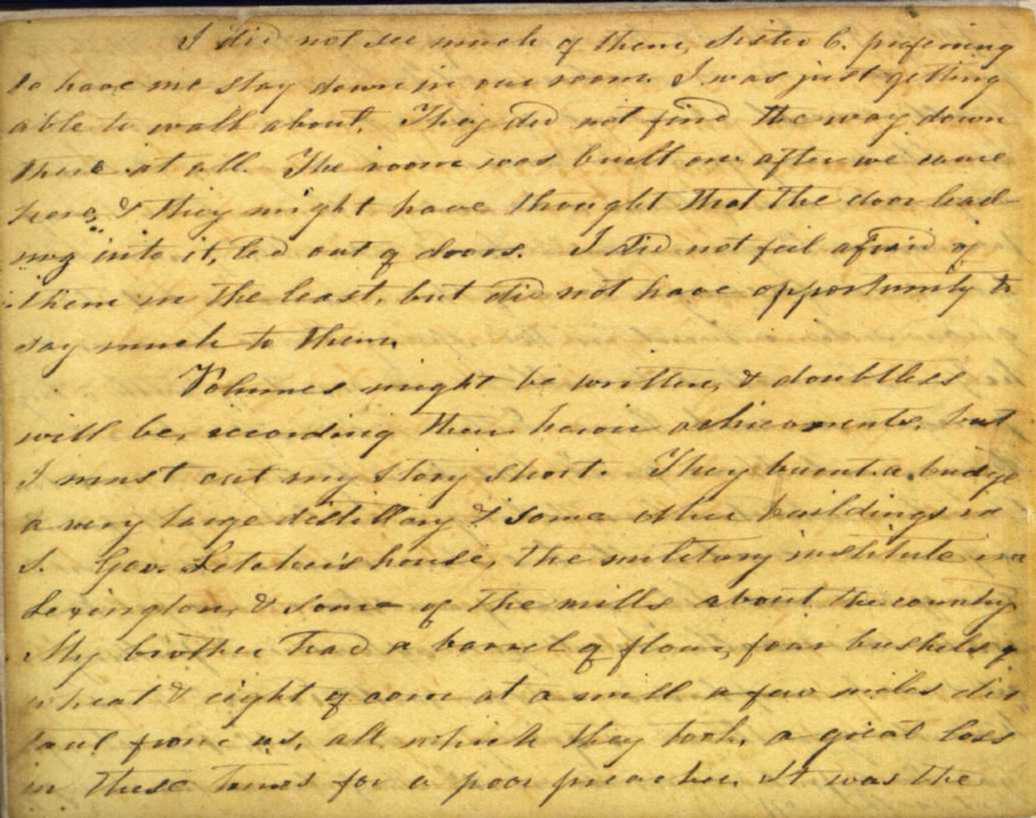 I did not see much of them, Sister C. prefering
to have me stay down in our room. I was just getting
able to walk about. They did not find the way down
there at all. The room was built on after we came
here, & they might have thought that the door lead-
ing into it, led out of doors. I did not feel afraid of
them in the least, but did not have opportunity to
say much to them.
Volumes might be written, & doubtless
will be, recording their heroic achievements, but
I must cut my story short. They burnt a bridge
a very large distillery & some other buildings in
S. Gov. Letcher's house, the military institute in
Lexington, & some of the mills about the country
My brother had a barrel of flour, four bushels of
wheat & eight of corn at a mill a few miles dis
tant from us, all which they took, a great loss
in these times for a poor preacher. It was the